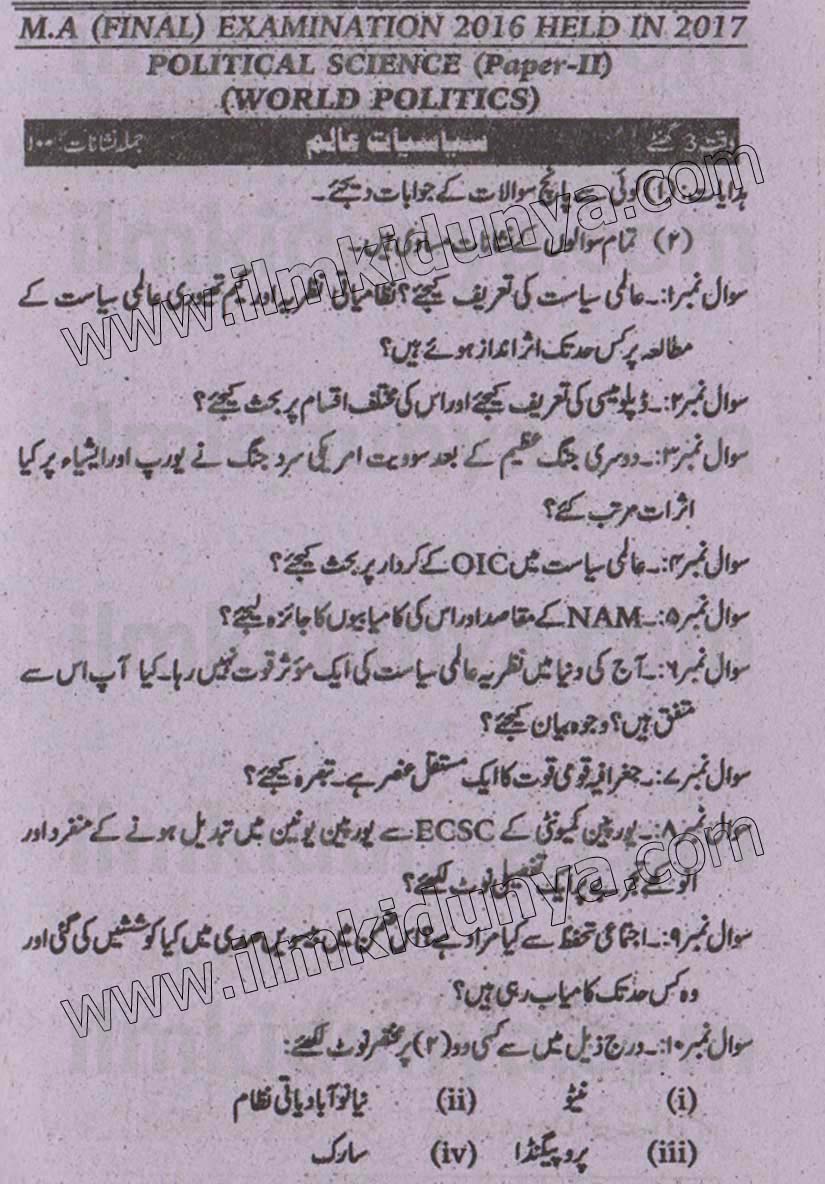 M.A (FINAL) EXAMINATION 2016 HELD IN 2017
POLITICAL SCIENCE (Paper-II)
(WORLD POLITICS)
وقت 3 گھنٹے سیاسیات عالم جملہ نشانات: ۱۰۰
ہدایات: (۱) کوئی سے پانچ سوالات کے جوابات دیجئے۔
(۲) تمام سوالوں کے نشانات مساوی ہیں۔
سوال نمبر ۱:۔ عالمی سیاست کی تعریف کیجئے؟ نظامیاتی نظریہ اور گیم تھیوری عالمی سیاست کے
مطالعہ پر کس حد تک اثر انداز ہوئے ہیں؟
سوال نمبر ۲:۔ ڈپلومیسی کی تعریف کیجئے اور اس کی مختلف اقسام پر بحث کیجئے؟
سوال نمبر ۳:۔ دوسری جنگ عظیم کے بعد سوویت امریکی سرد جنگ نے یورپ اور ایشیاء پر کیا
اثرات مرتب کئے؟
سوال نمبر ۴:۔ عالمی سیاست میں OIC کے کردار پر بحث کیجئے؟
سوال نمبر ۵:۔ NAM کے مقاصد اور اس کی کامیابیوں کا جائزہ لیجئے؟
سوال نمبر ۶:۔ آج کی دنیا میں نظریہ عالمی سیاست کی ایک مؤثر قوت نہیں رہا۔ کیا آپ اس سے
متفق ہیں؟ وجوہ بیان کیجئے؟
سوال نمبر ۷:۔ جغرافیہ قومی قوت کا ایک مستقل عنصر ہے۔ تبصرہ کیجئے؟
سوال نمبر ۸:۔ یورپین کمیونٹی کے ECSC سے یورپین یونین میں تبدیل ہونے کے منفرد اور
انوکھے تجربے پر ایک تفصیلی نوٹ لکھئے؟
سوال نمبر ۹:۔ اجتماعی تحفظ سے کیا مراد ہے؟ اس ضمن میں بیسویں صدی میں کیا کوششیں کی گئی اور
وہ کس حد تک کامیاب رہی ہیں؟
سوال نمبر ۱۰:۔ درج ذیل میں سے کسی دو (۲) پر مختصر نوٹ لکھئے:
(i) نیٹو (ii) نیا نوآبادیاتی نظام
(iii) پروپیگنڈا (iv) سارک
www.ilmkidunya.com
www.ilmkidunya.com